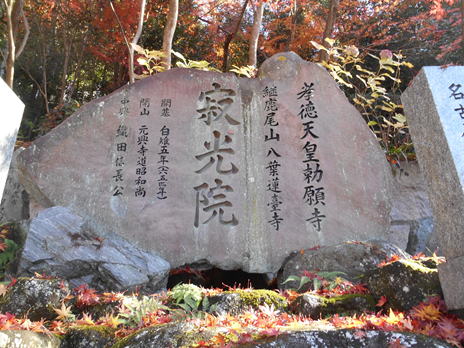 孝徳天皇勅願寺
継鹿尾山 八葉蓮臺寺
寂光院
開基 白雉五年(六五四年)
開山 元興寺道昭和尚
中興 織田信長公
名古